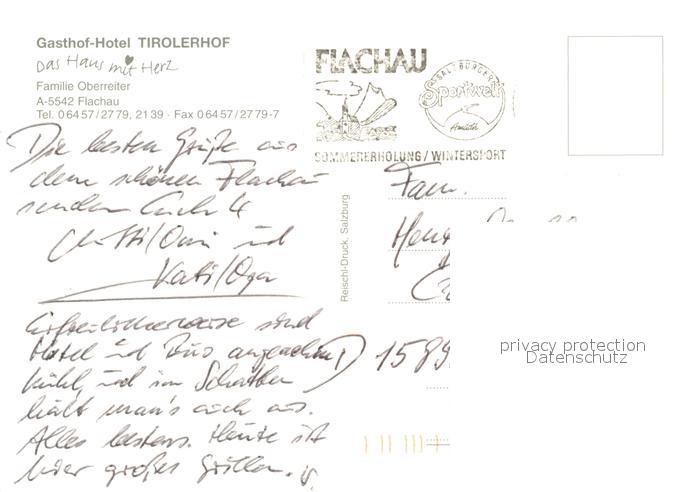 Gasthof-Hotel TIROLERHOF
Das Haus mit Herz
Familie Oberreiter
A-5542 Flachau
Tel. 06457/2779, 2139 · Fax 06457/2779-7
FLACHAU
SALZBURGER
Sportwelt
Amadé
SOMMERERHOLUNG/WINTERSPORT
Die besten Grüße aus
dem schönen Flachau
senden Euch
Omi und
Kati/Opa
Erfreulicherweise sind
Hotel und Bus angenehm
kühl, und im Schatten
hält man's auch aus.
Alles bestens. Heute ist
hier großes Grillen.
Reischl-Druck, Salzburg
Fam.
1589
privacy protection
Datenschutz